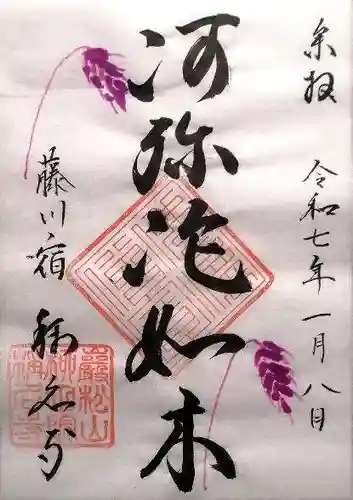 奉拝
令和七年一月八日
阿弥陀如来
藤川宿
称名寺
巖松山
称名寺